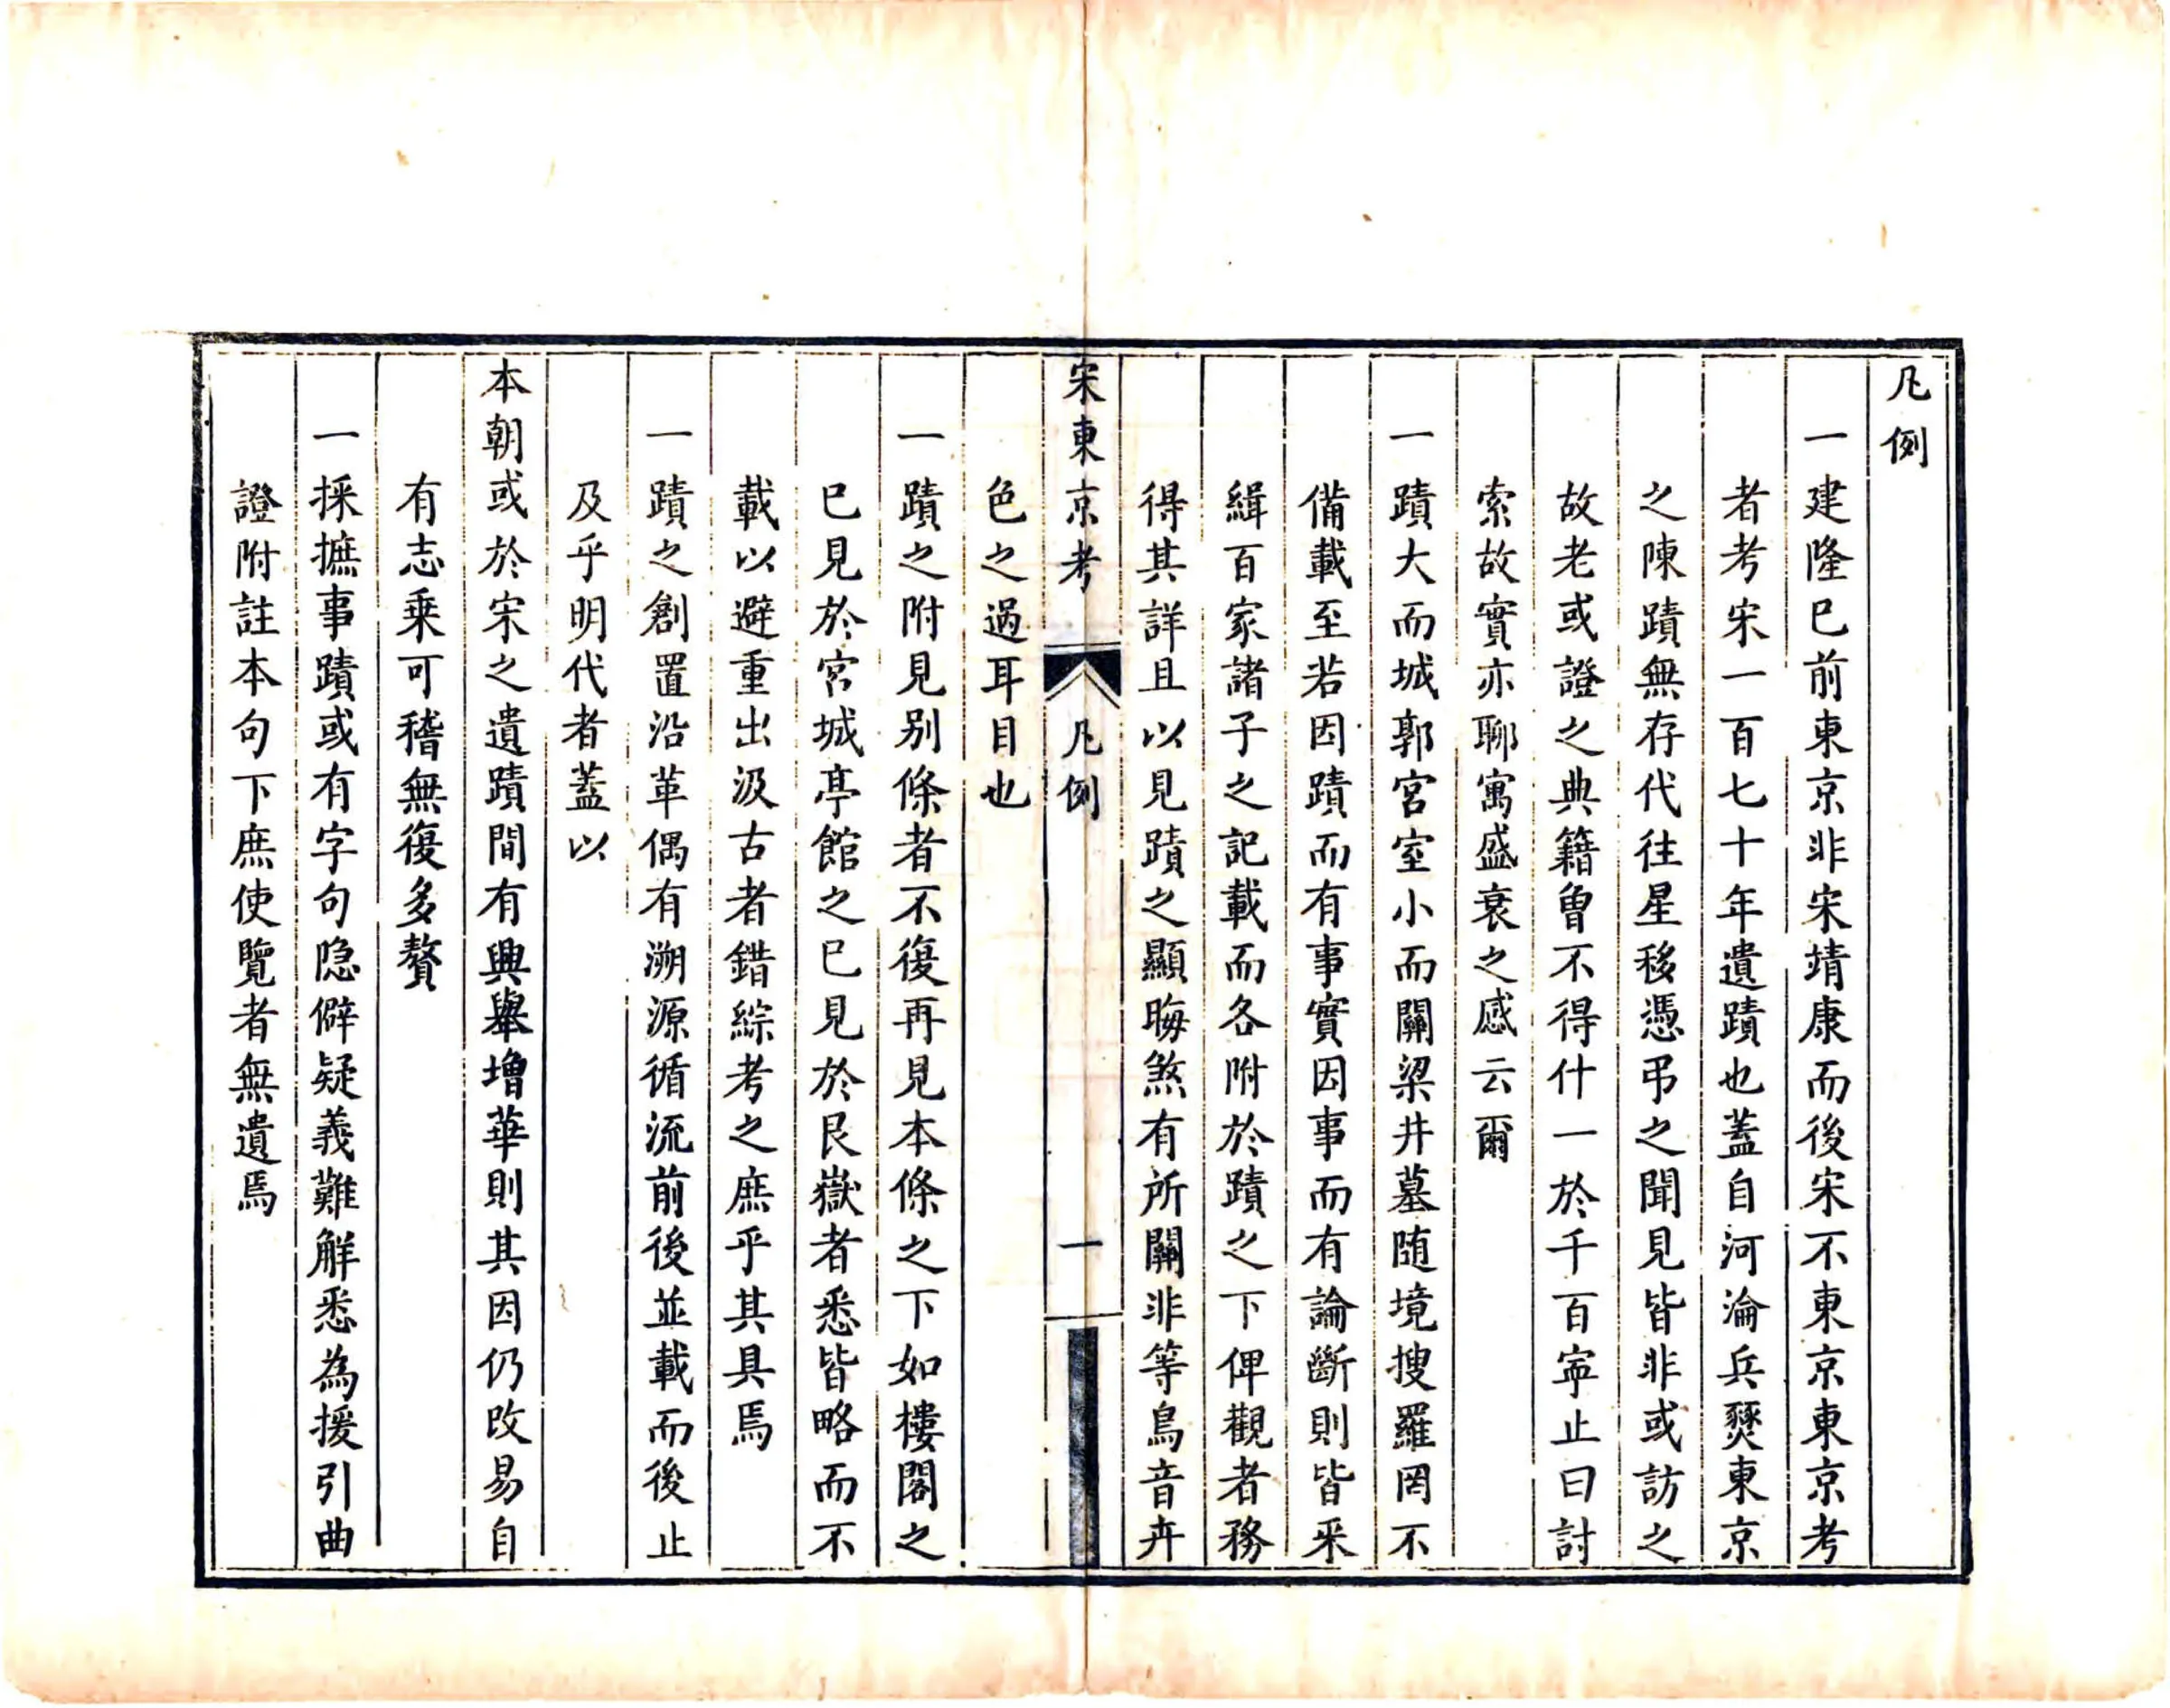 凡例
一建隆巳前東京非宋靖康而後宋不東京東京考
者考宋一百七十年遺蹟也蓋自河淪兵燹東京
之陳蹟無存代往星移憑弔之聞見皆非或訪之
故老或證之典籍曾不得什一於千百寜止曰討
索故實亦聊寓盛衰之感云爾
一蹟大而城郭宮室小而關梁井墓随境搜羅罔不
備載至若因蹟而有事實因事而有論斷則皆采
緝百家諸子之記載而各附於蹟之下俾觀者務
得其詳且以見蹟之顯晦煞有所關非等鳥音卉
宋東京考 凡例 一
色之過耳目也
一蹟之附見别條者不復再見本條之下如樓閣之
巳見於宮城亭館之巳見於艮嶽者悉皆略而不
載以避重出汲古者錯綜考之庶乎其具焉
一蹟之創置沿革偶有溯源循流前後並載而後止
及乎明代者蓋以
本朝或於宋之遺蹟間有興舉增華則其因仍改易自
有志乗可稽無復多贅
一採摭事蹟或有字句隐僻疑義難解悉為援引曲
證附註本句下庶使覽者無遺焉